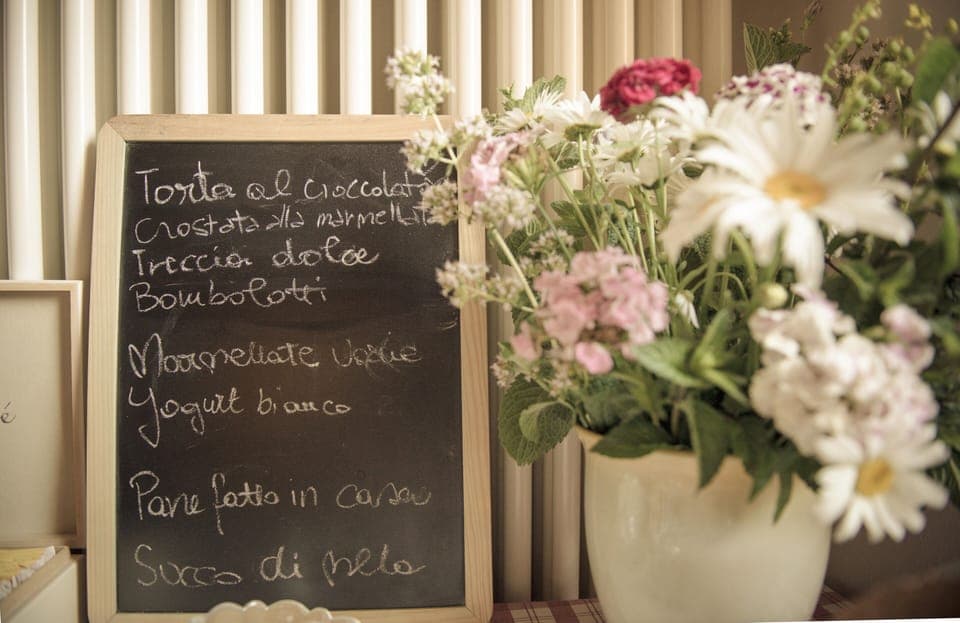 Torta al cioccolato
crostata alla marmellata
Treccia dolce
Bombolotti
Marmellate varie
Yogurt bianco
Pane fatto in casa
Succo di mela
é